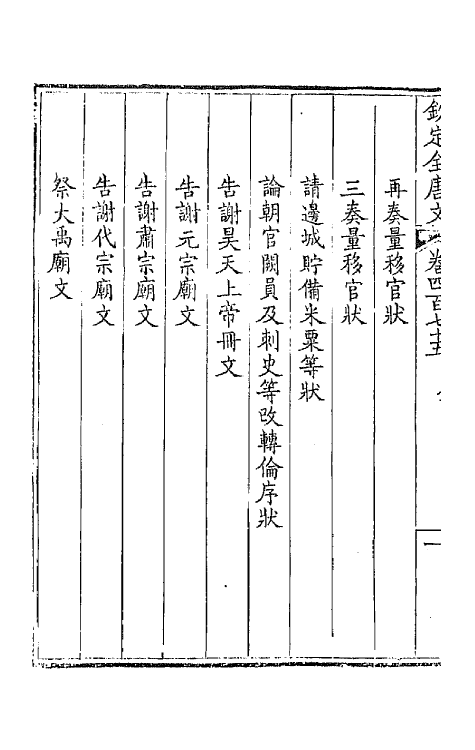 欽定全唐文 卷四百七十五
一
再奏量移官狀
三奏量移官狀
請邊城貯備米粟等狀
論朝官闕員及刺史等改轉倫序狀
告謝昊天上帝冊文
告謝元宗廟文
告謝肅宗廟文
告謝代宗廟文
祭大禹廟文